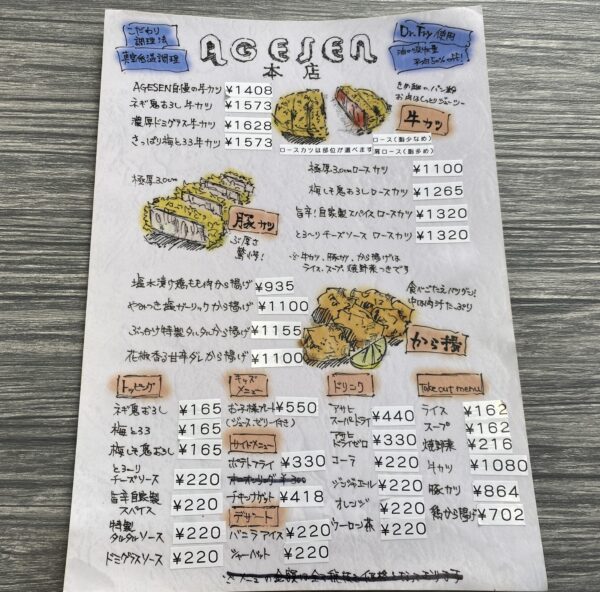 こだわり
調理法
真空低温調理
AGESEN
本店
Dr.Fry使用
油の吸収量
AGESEN自慢の牛カツ ¥1408
ネギ鬼おろし牛カツ ¥1573
濃厚ドミグラス牛カツ ¥1628
さっぱり梅とろろ牛カツ ¥1573
きめ細のパン粉
お肉はしっとりジューシー
牛カツ
ロースカツは部位が選べます
ロース(脂少なめ)
肩ロース(脂多め)
極厚3.0cm
豚カツ
ぶ厚さ
驚愕!
極厚3.0cmロースカツ ¥1100
梅しそ鬼おろしロースカツ ¥1265
旨辛!自家製スパイスロースカツ ¥1320
とろ〜りチーズソースロースカツ ¥1320
※牛カツ、豚カツ、から揚げは
ライス、スープ、焼野菜つきです
塩水漬け鶏もも肉から揚げ ¥935
やみつき塩ガーリックから揚げ ¥1100
ぶっかけ特製タルタルから揚げ ¥1155
花椒香る甘辛ダレから揚げ ¥1100
食べごたえバツグン!
中は肉汁たっぷり
から揚
トッピング
ネギ鬼おろし ¥165
梅とろろ ¥165
梅しそ鬼おろし ¥165
とろ〜り
チーズソース ¥220
旨辛自家製
スパイス ¥220
特製
タルタルソース ¥220
ドミグラスソース ¥220
キッズ
メニュー
お子様プレート ¥550
(ジュース、ゼリー付き)
サイドメニュー
ポテトフライ ¥330
オニオンリング ¥300
チキンナゲット ¥418
デザート
バニラアイス ¥220
シャーベット ¥220
ドリンク
アサヒ
スーパードライ ¥440
アサヒ
ドライゼロ ¥330
コーラ ¥220
ジンジャエール ¥220
オレンジ ¥220
ウーロン茶 ¥220
Take out menu
ライス ¥162
スープ ¥162
焼野菜 ¥216
牛カツ ¥1080
豚カツ ¥864
鶏から揚げ ¥702